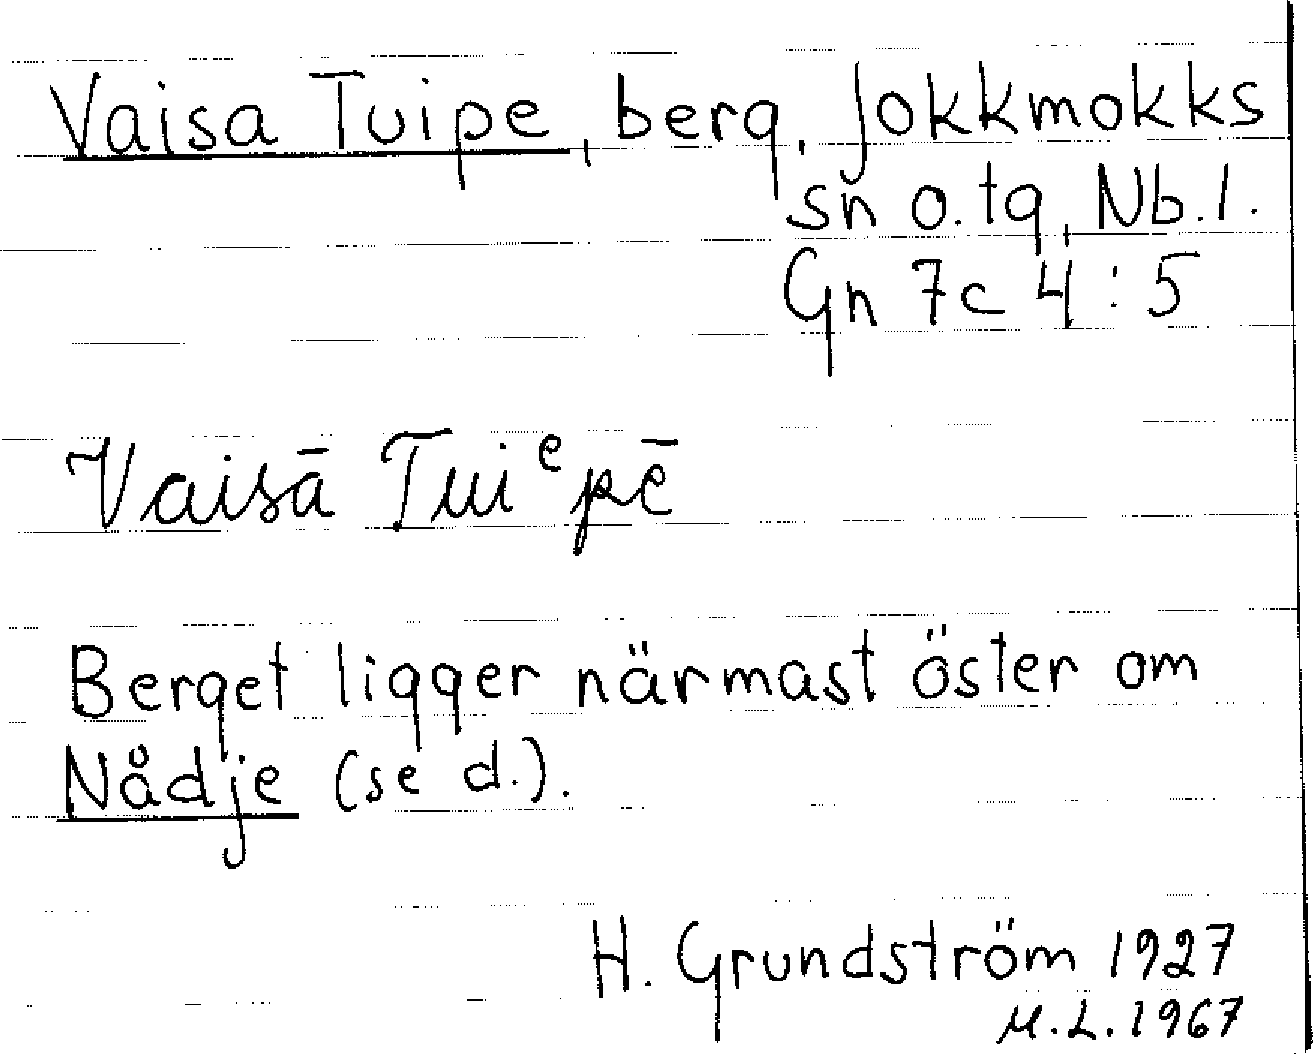 Vaisa Tuipe, berg, Jokkmokks
sn o. tg, Nb. l.
Gn 7c 4:5
Vaisā Tuiᵉpē
Berget ligger närmast öster om
Nådje (se d.).
H. Grundström 1927
M.L. 1967